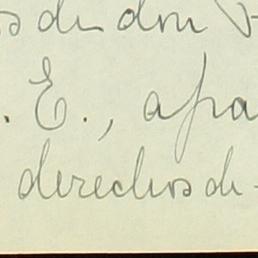 os de don
. E., apa
derechos de-